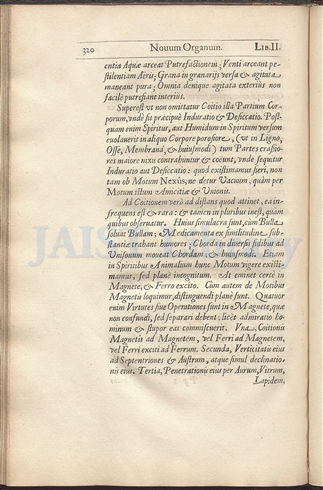 320 Novum Organum. LIB.II.
entia Aquæ arceat Putrefactionem; Venti arceant pe-
stilentiam Aeris; Grana in granarijs versa & agitata
maneant pura; Omnia denique agitata exterius non
facilè putrefiant interiùs.
Superest vt non omittatur Coitio illa Partium Cor-
porum, vndè fit præcipuè Induratio & Desiccatio. Post-
quam enim Spiritus, aut Humidum in Spiritum versum
euolauerit in aliquo Corpore porosiore, (vt in Ligno,
Osse, Membranâ, & huiusmodi) tum Partes crassio-
res maiore nixu contrahuntur & coeunt, vnde sequitur
Induratio aut Desiccatio: quod existimamus fieri, non
tam ob Motum Nexûs, ne detur Vacuum, quàm per
Motum istum Amicitiæ & Vnionis.
Ad Coitionem verò ad distans quod attinet, ea in-
frequens est & rara: & tamen in pluribus inest, quàm
quibus obseruatur. Huius simulacra sunt, cùm Bulla
soluat Bullam; Medicamenta ex similitudine sub-
stantiæ trahant humores; Chorda in diuersis fidibus ad
Vnisonum moueat Chordam, & huiusmodi. Etiam
in Spiritibus Animalium hunc Motum vigere existi-
mamus, sed planè incognitum. At eminet certè in
Magnete, & Ferro excito. Cum autem de Motibus
Magnetis loquimur, distinguendi planè sunt. Quatuor
enim Virtutes siue Operationes sunt in Magnete, quæ
non confundi, sed separari debent; licèt admiratio ho-
minum & stupor eas commiscuerit. Vna, Coitionis
Magnetis ad Magnetem, vel Ferri ad Magnetem,
vel Ferri exciti ad Ferrum. Secunda, Verticitatis eius
ad Septentriones & Austrum, atque simul declinatio-
nis eius. Tertia, Penetrationis eius per Aurum, Vitrum,
Lapidem,
JAIST Library